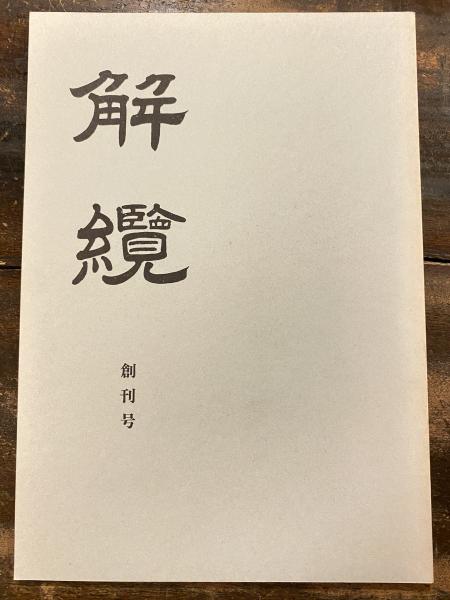 解纜
創刊号